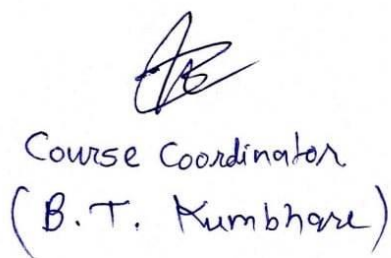 Course Coordinator
(B. T. Kumbhare)